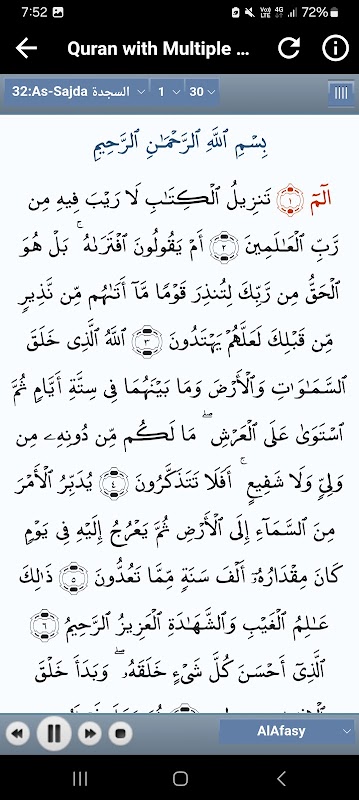 7:52 72%
Quran with Multiple ...
32:As-Sajda السجدة 1 30
بِسْمِ ٱللَّهِ ٱلرَّحْمَـٰنِ ٱلرَّحِيمِ
الٓمٓ ١ تَنزِيلُ ٱلْكِتَـٰبِ لَا رَيْبَ فِيهِ مِن
رَّبِّ ٱلْعَـٰلَمِينَ ٢ أَمْ يَقُولُونَ ٱفْتَرَىٰهُ ۚ بَلْ هُوَ
ٱلْحَقُّ مِن رَّبِّكَ لِتُنذِرَ قَوْمًا مَّآ أَتَىٰهُم مِّن نَّذِيرٍ
مِّن قَبْلِكَ لَعَلَّهُمْ يَهْتَدُونَ ٣ ٱللَّهُ ٱلَّذِى خَلَقَ
ٱلسَّمَـٰوَٰتِ وَٱلْأَرْضَ وَمَا بَيْنَهُمَا فِى سِتَّةِ أَيَّامٍ ثُمَّ
ٱسْتَوَىٰ عَلَى ٱلْعَرْشِ ۖ مَا لَكُم مِّن دُونِهِۦ مِن
وَلِىٍّ وَلَا شَفِيعٍ ۚ أَفَلَا تَتَذَكَّرُونَ ٤ يُدَبِّرُ ٱلْأَمْرَ
مِنَ ٱلسَّمَآءِ إِلَى ٱلْأَرْضِ ثُمَّ يَعْرُجُ إِلَيْهِ فِى يَوْمٍ
كَانَ مِقْدَارُهُۥٓ أَلْفَ سَنَةٍ مِّمَّا تَعُدُّونَ ٥ ذَٰلِكَ
عَـٰلِمُ ٱلْغَيْبِ وَٱلشَّهَـٰدَةِ ٱلْعَزِيزُ ٱلرَّحِيمُ ٦
ٱلَّذِىٓ أَحْسَنَ كُلَّ شَىْءٍ خَلَقَهُۥ ۖ وَبَدَأَ خَلْقَ
AlAfasy